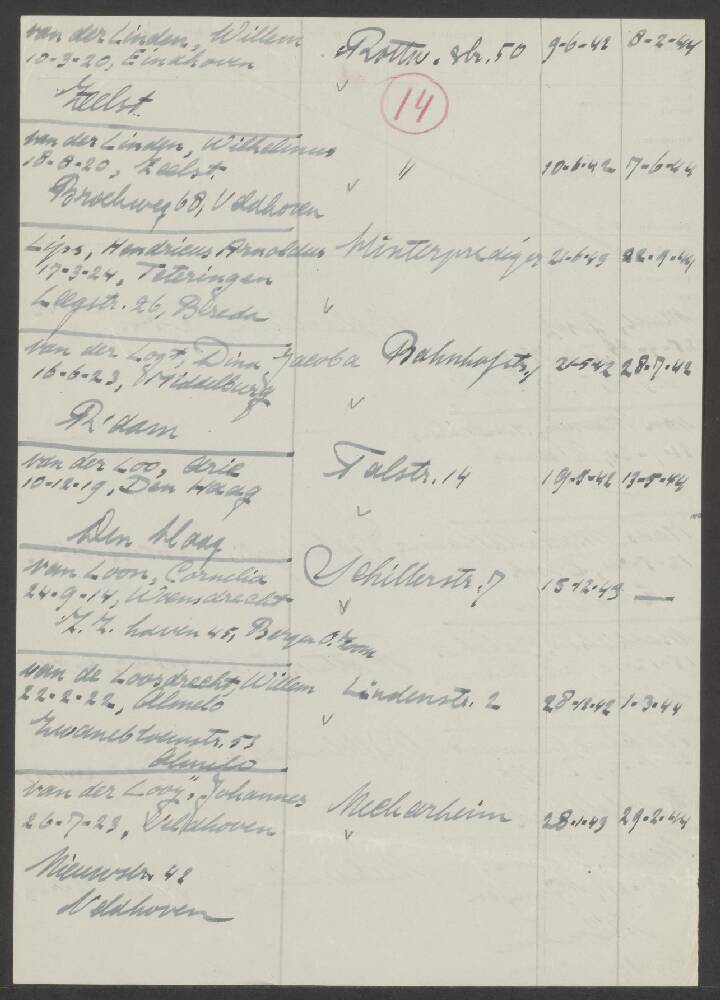 van der Linden, Willem Rottw. str. 50 9-6-42 8-2-44
10-3-20, Eindhoven
Zeelst
14
van der Linden, Wilhelmus
18-8-20, Zeelst " 10-6-42 7-6-44
Broekweg 68, Veldhoven
Lips, Hendricus Arnoldus Winterprediger 21-6-43 22-9-44
17-3-24, Teteringen
Leegstr. 26, Breda
van der Logt, Dina Jacoba Bahnhofstr. 21-5-42 28-7-42
16-6-23, Middelburg
R'dam
van der Loo, Arie Talstr. 14 19-5-42 13-5-44
10-12-19, Den Haag
Den Haag
van Loon, Cornelia Schillerstr. 7 15-12-43 —
24-9-14, Woensdrecht
Z.Z. haven 45, Bergen O. Zoom
van de Loosdrecht, Willem Lindenstr. 2 28-12-42 1-3-44
22-2-22, Almelo
Zwanebloemstr. 53
Almelo
van der Looy, Johannes Neckarheim 28-1-43 29-2-44
26-7-23, Veldhoven
Nieuwstr. 42
Veldhoven